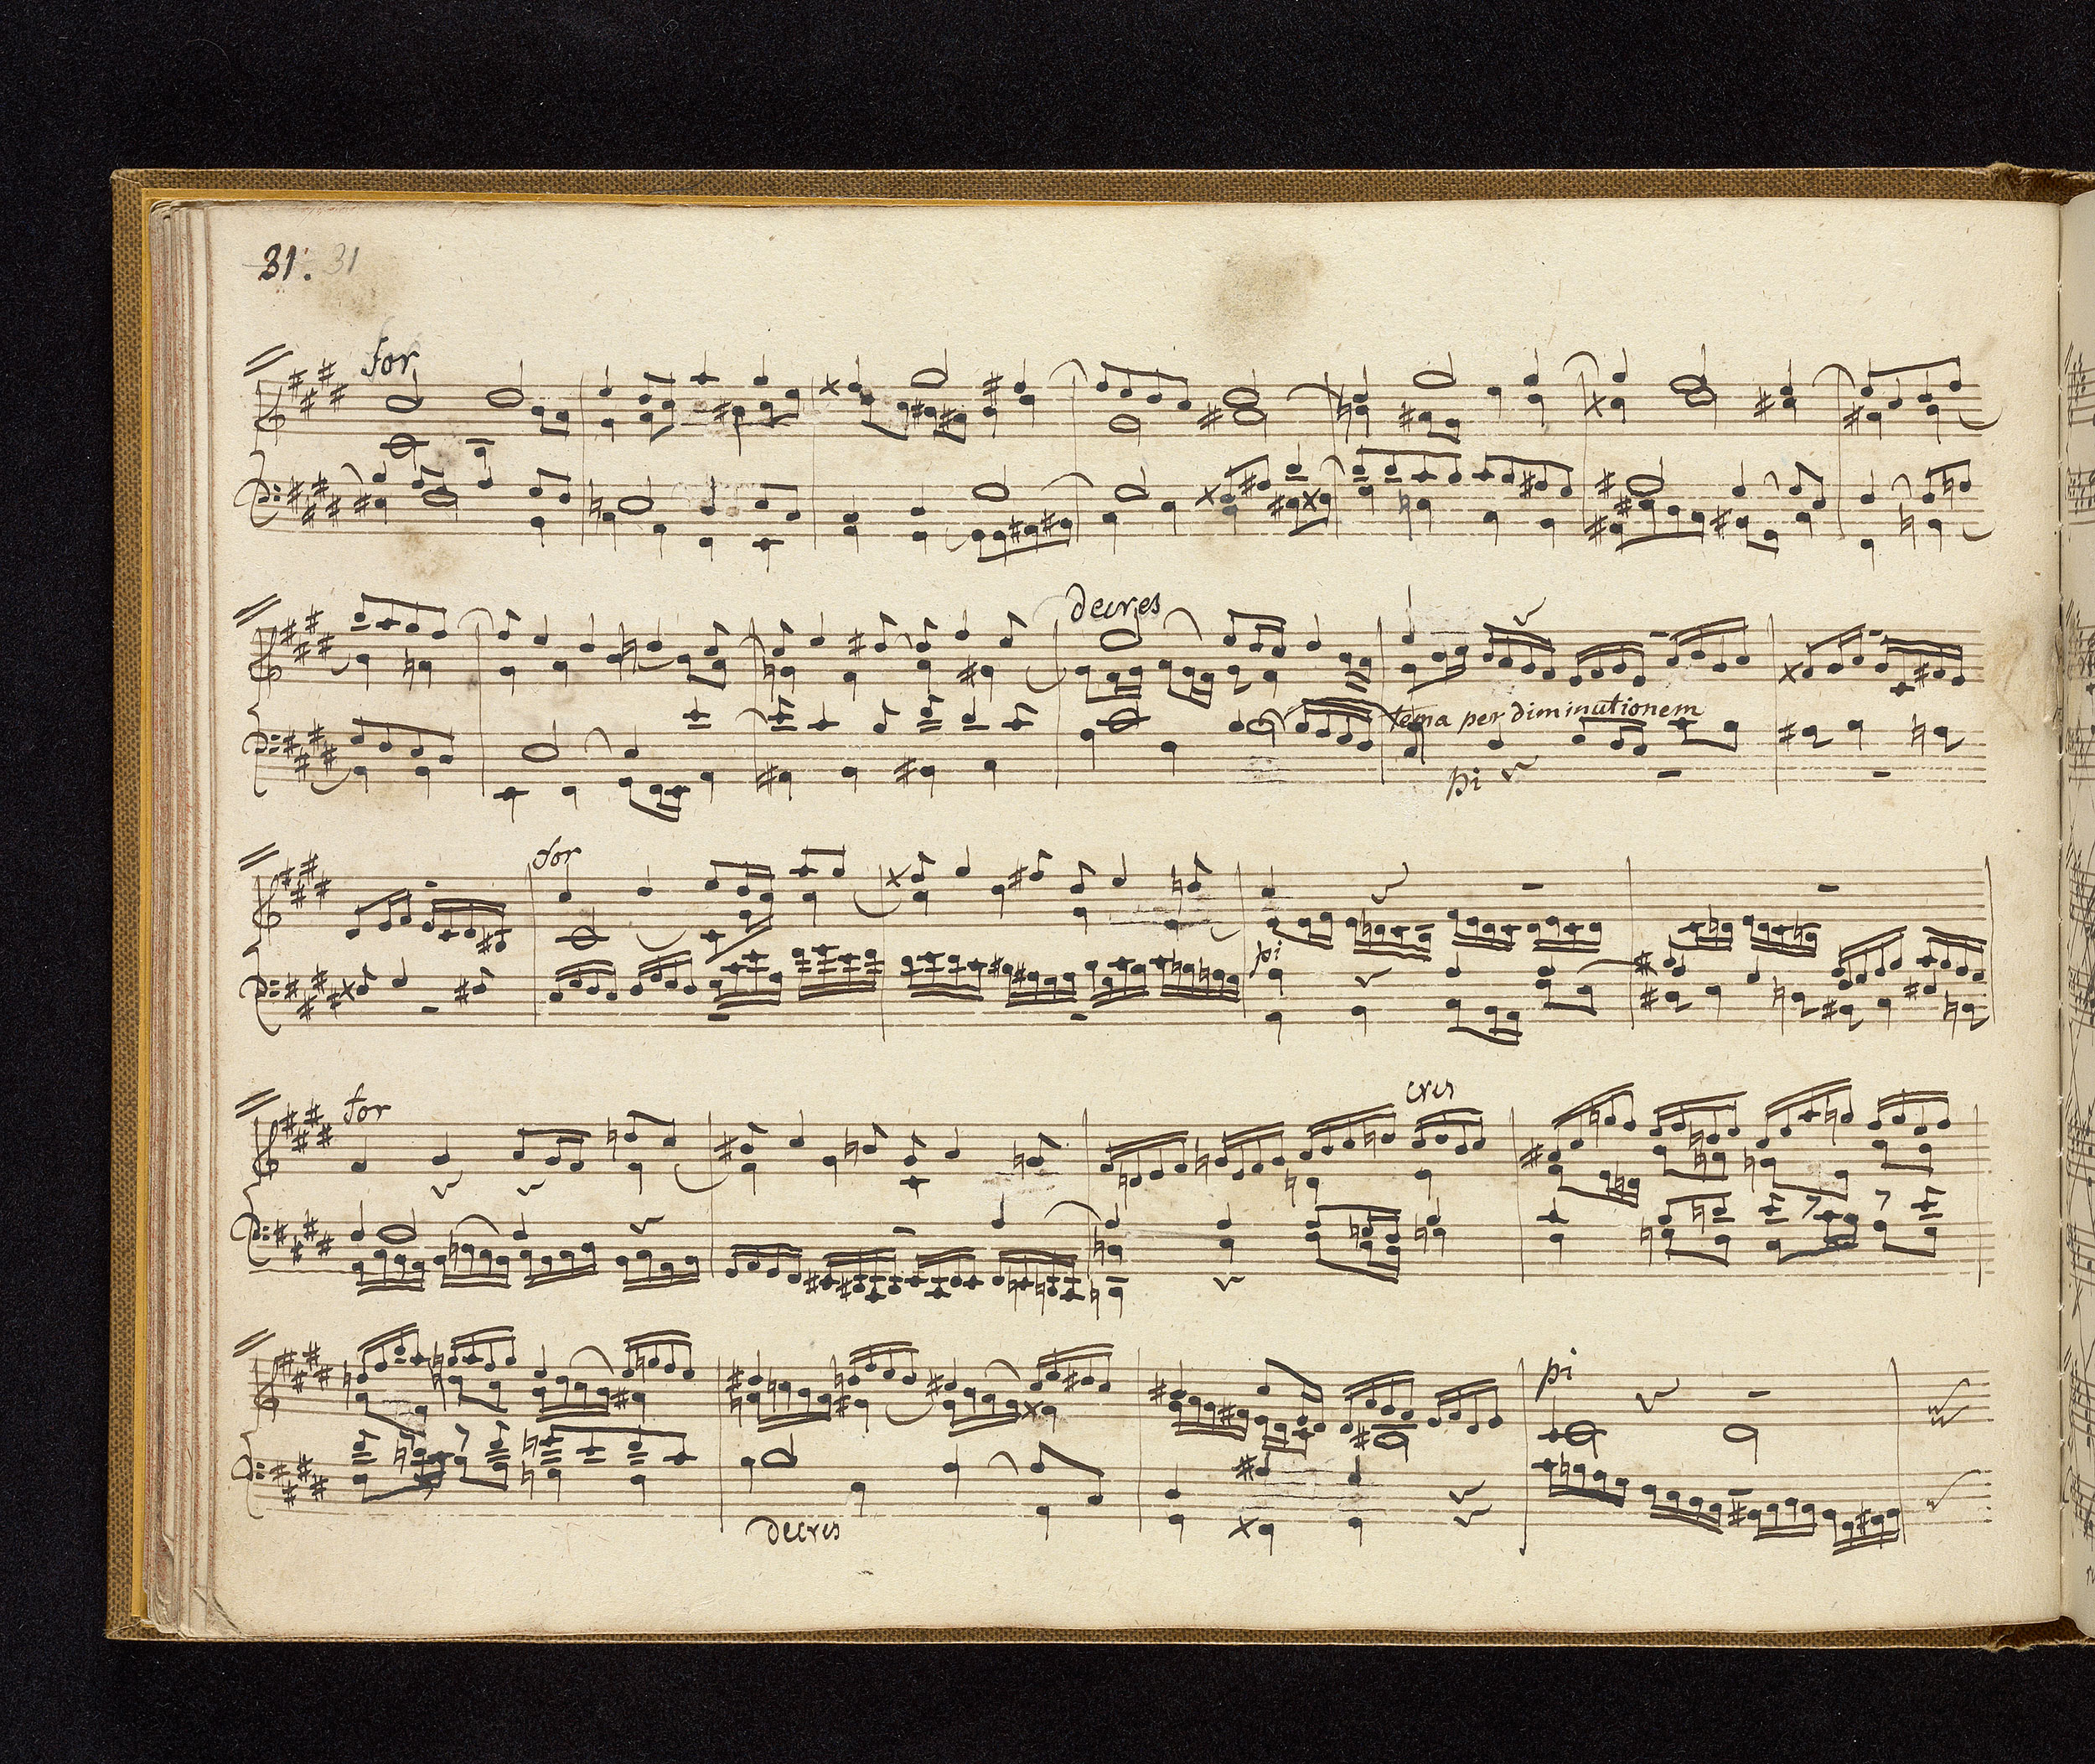 31. 31
for
decres
tema per diminutionem
pi
for
pi
for
cres
pi
decres